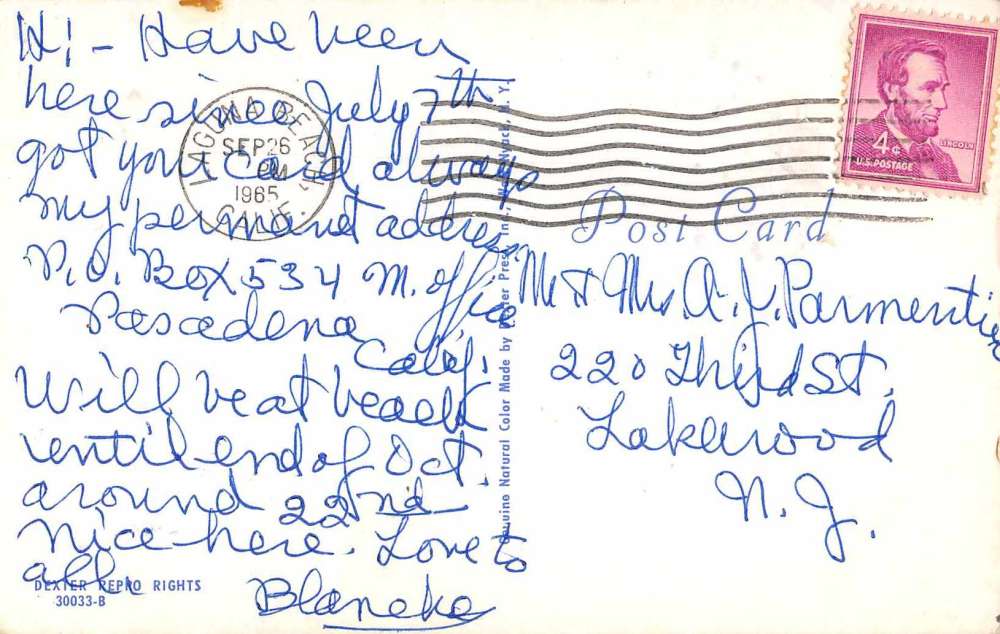 Hi - Have been
here since July 7th
got your card always
my permanet address
P.O. Box 534 M. Office
Pasadena
Calif.
Will be at beach
until end of Oct
around 22nd
nice here. Love to
all.
Blaneke
LAGUNA BEACH,
SEP 26
PM
1965
CALIF.
4¢
LINCOLN
U.S. POSTAGE
Post Card
Mr & Mrs A. J. Parmentier
220 Third St.
Lakewood
N. J.
Genuine Natural Color Made by Dexter Press, Inc., Nyack, N. Y.
DEXTER REPRO RIGHTS
30033-B